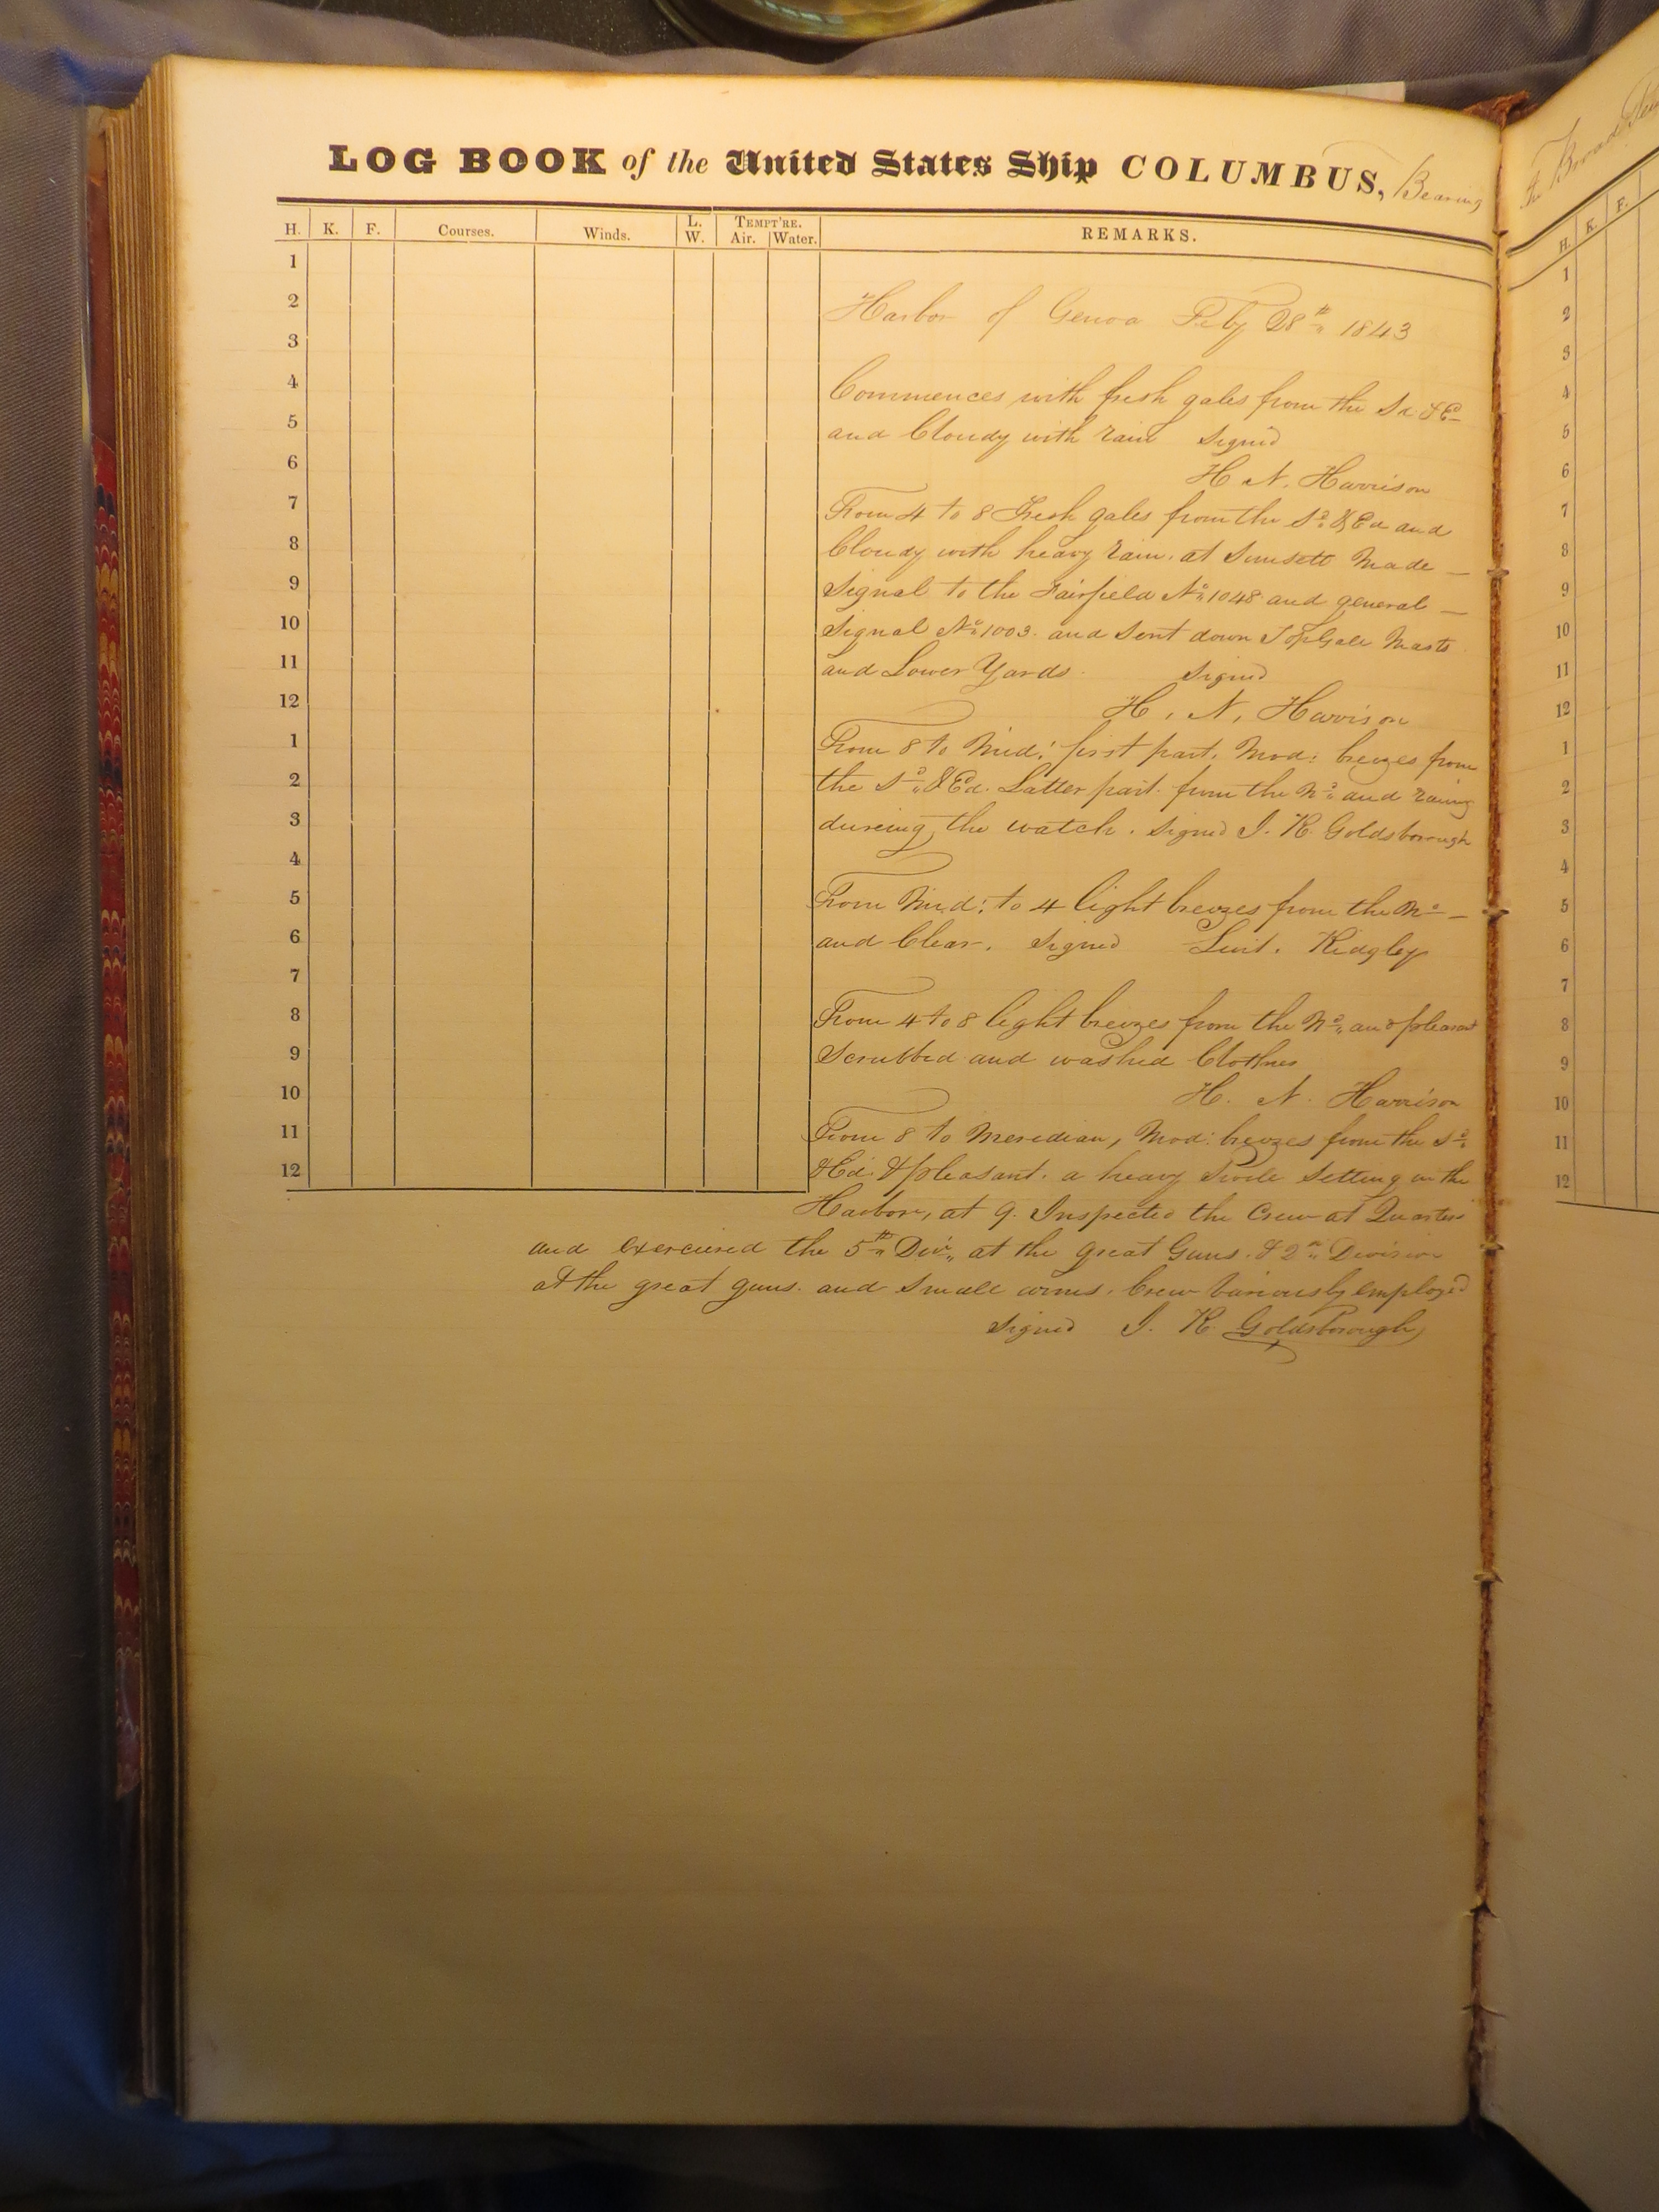 LOG BOOK of the United States Ship COLUMBUS, Bearing
H. K. F. Courses. Winds. L. W. TEMPT'RE. Air. Water. REMARKS.
1
2
Harbor of Genoa Feby 28th 1843
3
4
Commences with fresh gales from the Sd & Ed
5
and Cloudy with rain Signed
6
H. N. Harrison
7
From 4 to 8 Fresh gales from the Sd & Ed and
8
Cloudy with heavy rain. at Sunsett Made
9
Signal to the Fairfield No 1048 and general
10
Signal No 1003. and Sent down TopGall Masts
11
and Lower Yards. Signed
12
H. N. Harrison
1
From 8 to Mid: first part. Mod: breezes from
2
the Sd & Ed. Latter part. from the Nd and raing
3
dureing the watch. Signed J. R. Goldsborough
4
5
From Mid: to 4 light breezes from the Nd
6
and Clear. Signed Luit. Ridgley
7
8
From 4 to 8 light breezes from the Nd and pleasant
9
Scrubbed and washed Clothes
10
H. N. Harrison
11
From 8 to Meredian, Mod: breezes from the Sd
12
& Ed. & pleasant. a heavy Swile Setting in the
Harbor, at 9. Inspected the Crew at Quarters
and exercised the 5th Divn at the great Guns. & 2n Division
at the great guns. and Small arms. Crew variously employed
Signed J. R. Goldsborough
The Broad
H. K. F.
1
2
3
4
5
6
7
8
9
10
11
12
1
2
3
4
5
6
7
8
9
10
11
12